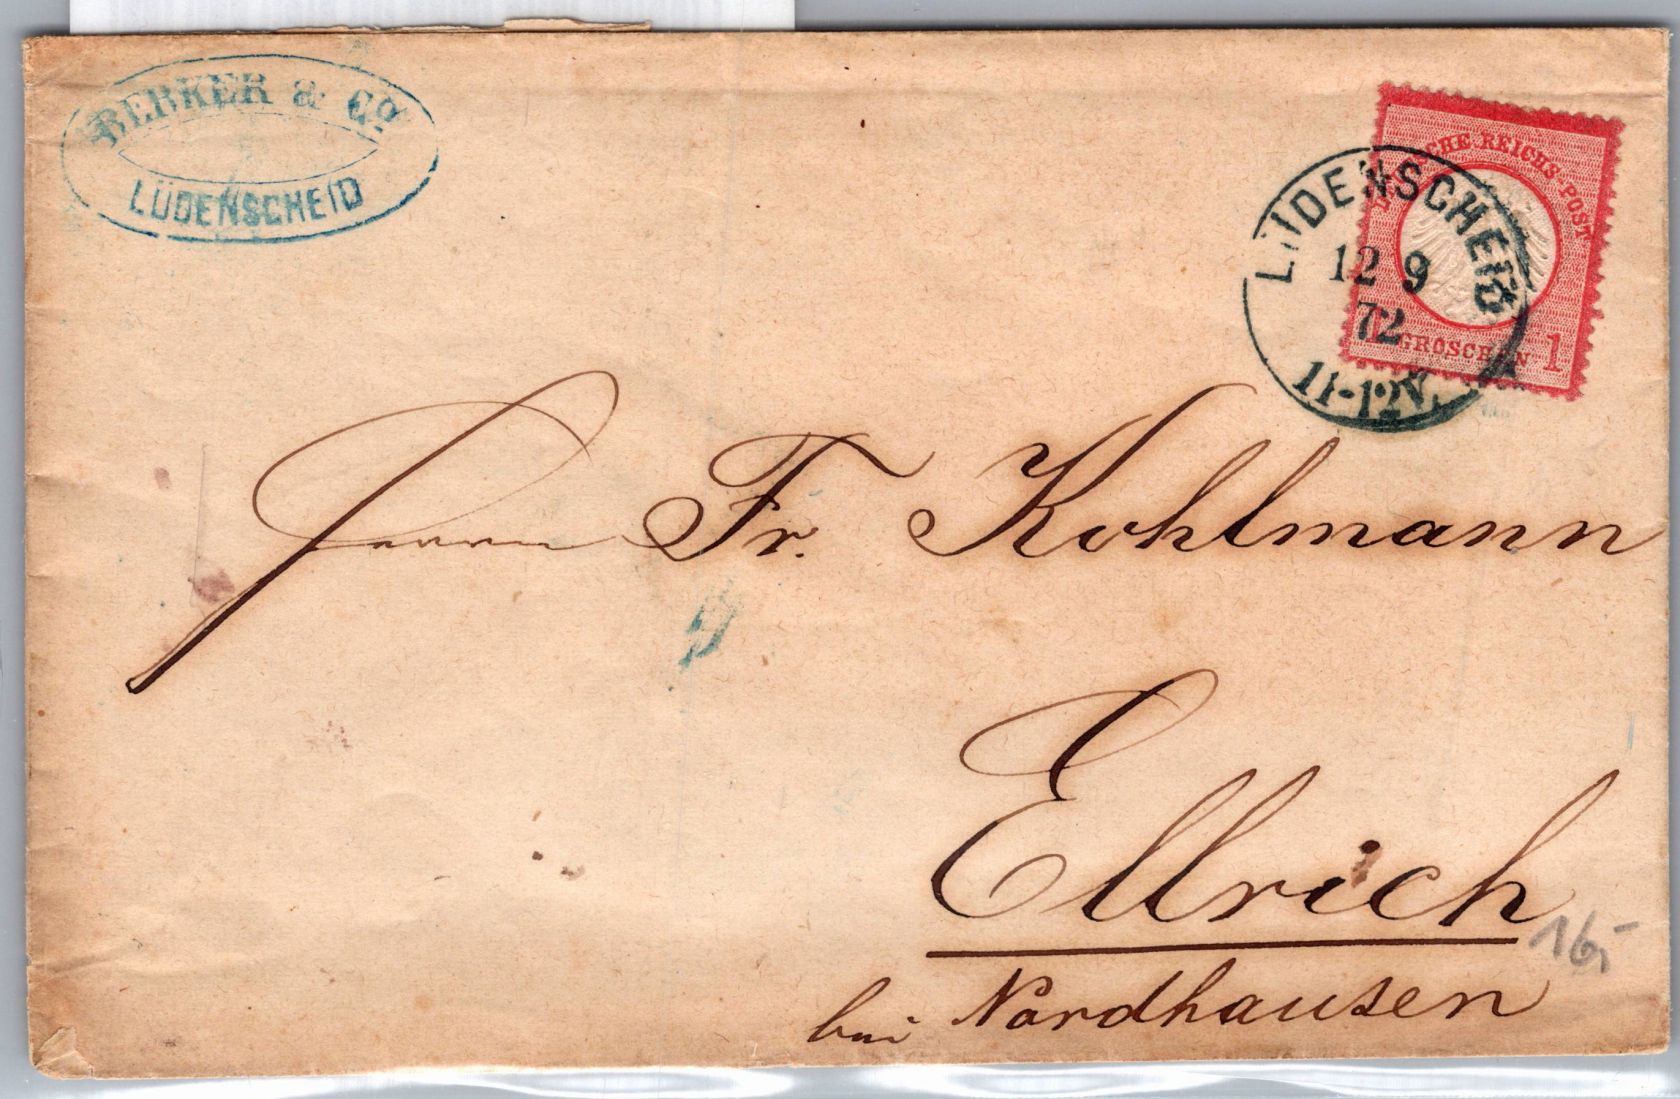 BERKER & Cº
LÜDENSCHEID
DEUTSCHE REICHS-POST
1 GROSCHEN 1
LÜDENSCHEID
12 9
72
11-12V.
Herrn Fr. Kohlmann
Ellrich
bei Nordhausen
16,-